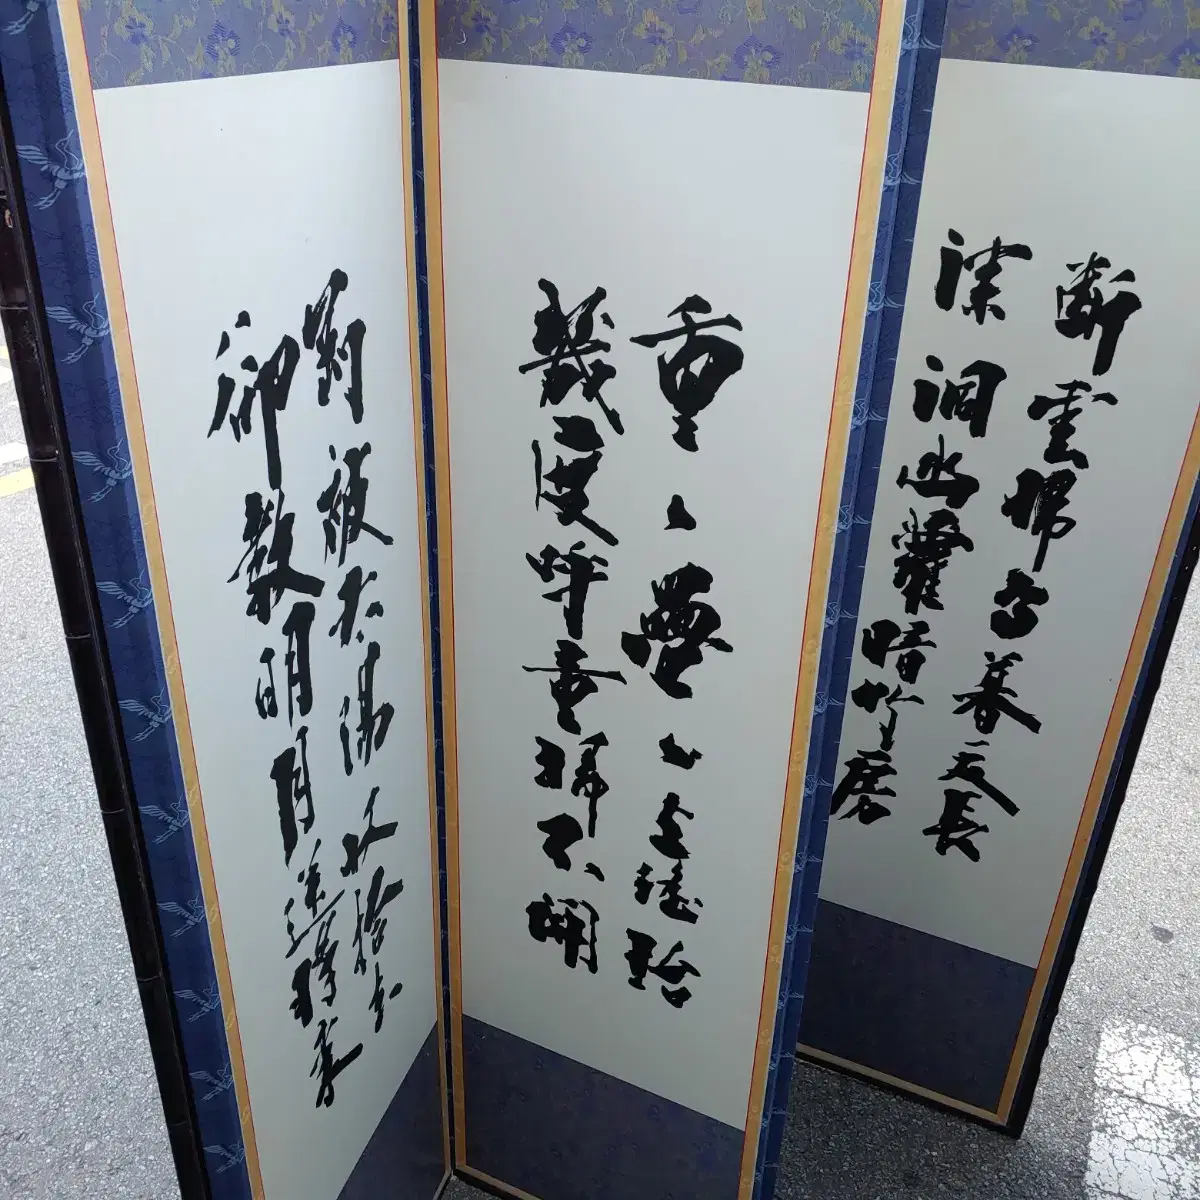 斷雲歸鳥暮天長
深洞幽蘿暗竹房
重〻疊〻上瑤臺
幾度呼童掃不開
剛被太陽收拾去
却教明月送將來